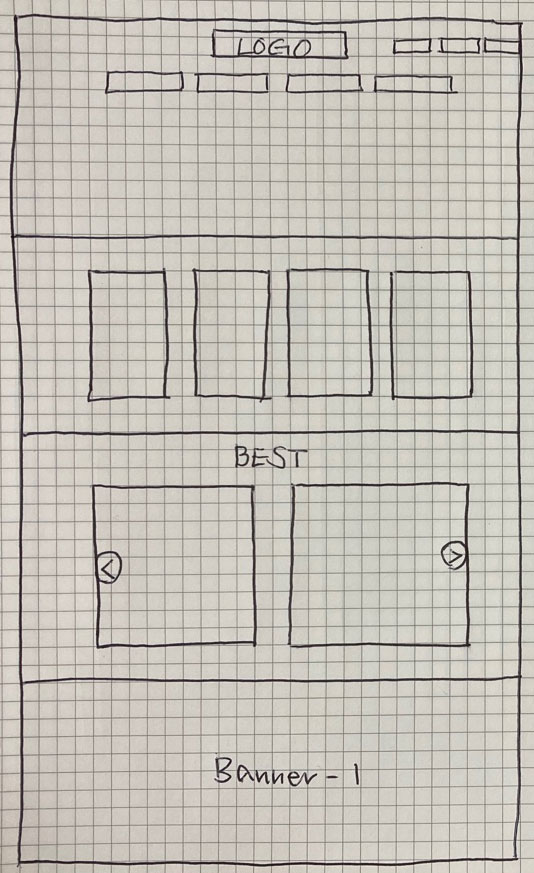 LOGO
BEST
<
>
Banner - 1